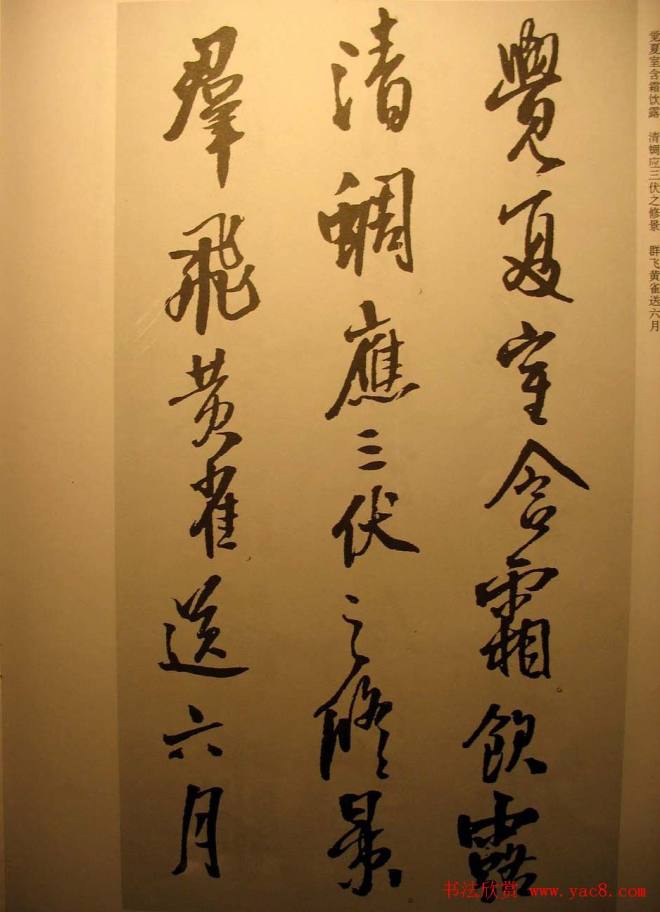 觉夏室含霜饮露　清蜩应三伏之修景　群飞黄雀送六月
覺夏室含霜飲露
清蜩應三伏之脩景
羣飛黃雀送六月
书法欣赏 www.yac8.com